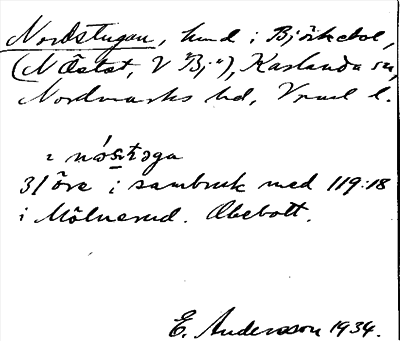 Nordstugan, hmd i Björkebol,
(N Östot, V "Bj"), Karlanda sn,
Nordmarks hd, Vrml l.
i nósstøga
31 öre i sambruk med 119:18
i Mölnerud. Obebott.
E. Andersson 1934.